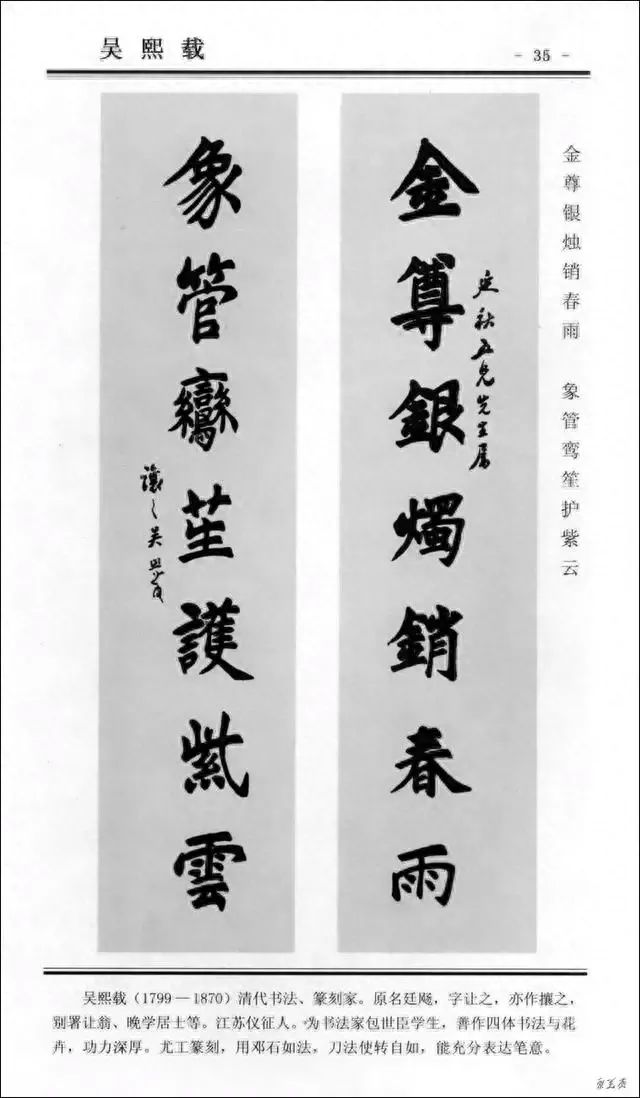 吴熙载
- 35 -
金尊银烛销春雨　象管鸾笙护紫云
金尊銀燭銷春雨
五兄先生属
象管鸞笙護紫雲
讓之吴熙載
吴熙载（1799—1870）清代书法、篆刻家。原名廷飏，字让之，亦作攘之，
别署让翁、晚学居士等。江苏仪征人。为书法家包世臣学生，善作四体书法与花
卉，功力深厚。尤工篆刻，用邓石如法，刀法使转自如，能充分表达笔意。